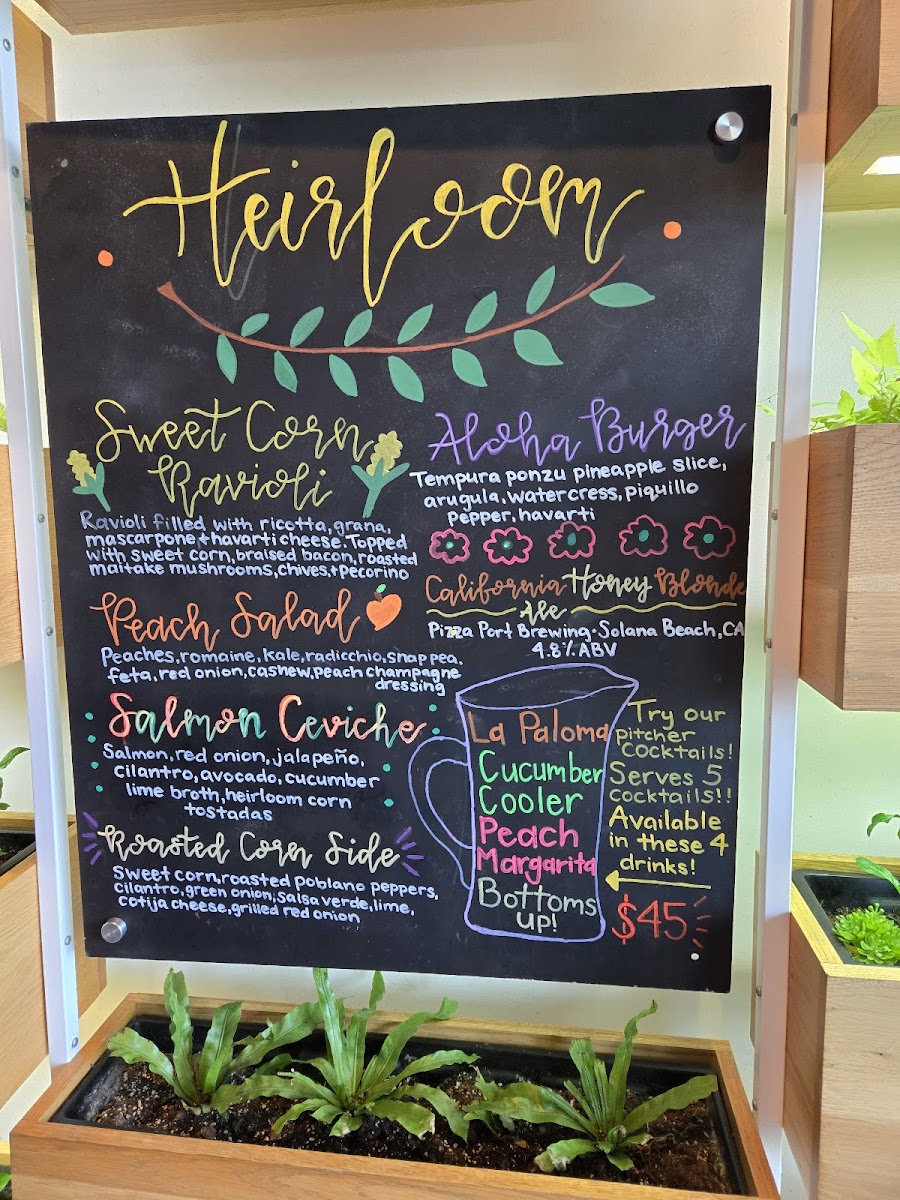 Heirloom
Sweet Corn
Ravioli
Ravioli filled with ricotta, grana,
mascarpone + havarti cheese. Topped
with sweet corn, braised bacon, roasted
maitake mushrooms, chives, + pecorino
Peach Salad
Peaches, romaine, kale, radicchio, snap pea,
feta, red onion, cashew, peach champagne
dressing
Salmon Ceviche
Salmon, red onion, jalapeño,
cilantro, avocado, cucumber
lime broth, heirloom corn
tostadas
Roasted Corn Side
Sweet corn, roasted poblano peppers,
cilantro, green onion, salsa verde, lime,
cotija cheese, grilled red onion
Aloha Burger
Tempura ponzu pineapple slice,
arugula, watercress, piquillo
pepper, havarti
California Honey Blonde
Ale
Pizza Port Brewing · Solana Beach, CA
4.8% ABV
La Paloma
Cucumber
Cooler
Peach
Margarita
Bottoms
up!
Try our
pitcher
cocktails!
Serves 5
cocktails!!
Available
in these 4
drinks!
$45